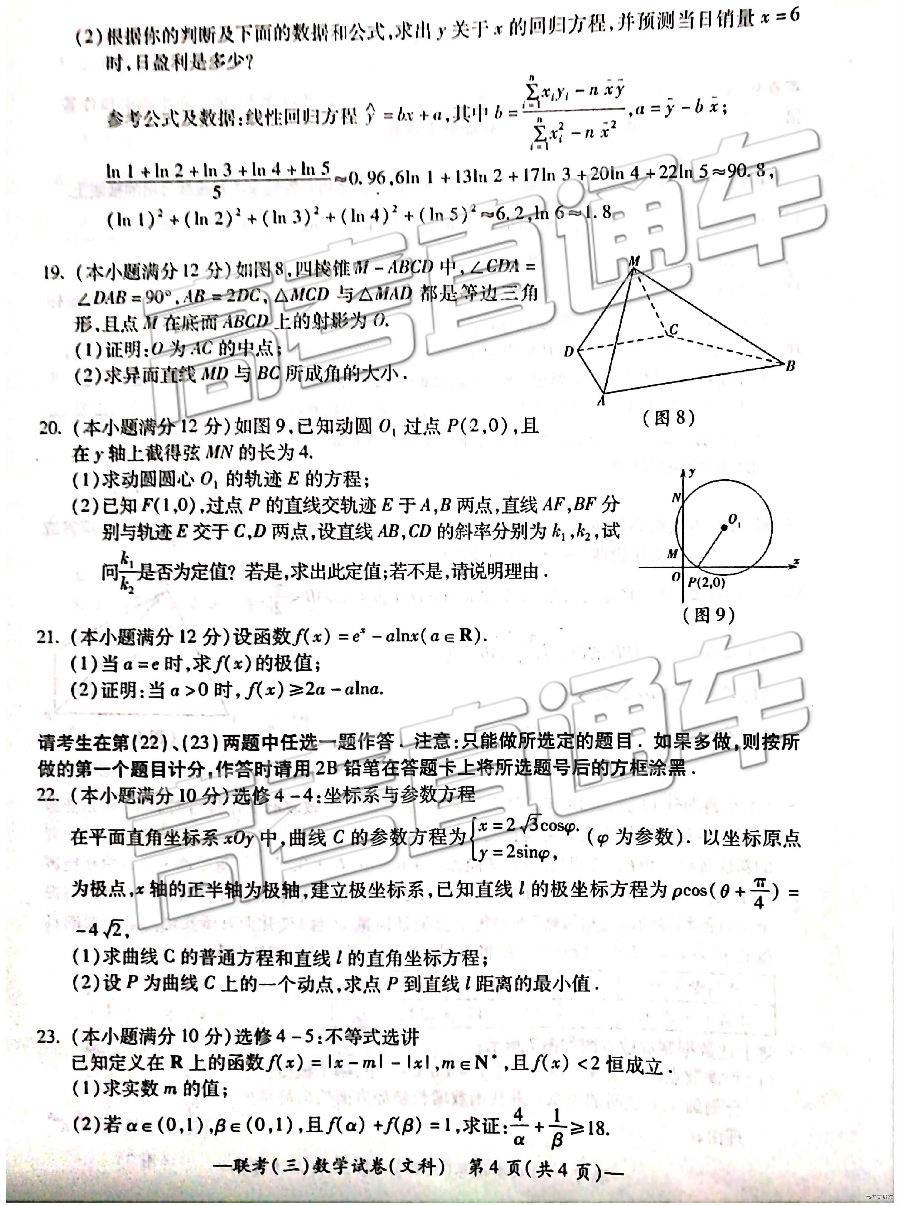 (2)根据你的判断及下面的数据和公式,求出 y 关于 x 的回归方程,并预测当日销量 x = 6
时,日盈利是多少?
参考公式及数据:线性回归方程 ŷ = bx + a,其中 b = (∑_{i=1}^{n} x_i y_i − n x̄ȳ) / (∑_{i=1}^{n} x_i² − n x̄²), a = ȳ − b x̄;
(ln 1 + ln 2 + ln 3 + ln 4 + ln 5)/5 ≈ 0.96, 6ln 1 + 13ln 2 + 17ln 3 + 20ln 4 + 22ln 5 ≈ 90.8,
(ln 1)² + (ln 2)² + (ln 3)² + (ln 4)² + (ln 5)² ≈ 6.2, ln 6 ≈ 1.8
19. (本小题满分 12 分)如图8,四棱锥 M − ABCD 中,∠CDA =
∠DAB = 90°, AB = 2DC, △MCD 与 △MAD 都是等边三角
形,且点 M 在底面 ABCD 上的射影为 O.
(1)证明:O 为 AC 的中点;
(2)求异面直线 MD 与 BC 所成角的大小.
M
C
D
B
A
(图 8)
20. (本小题满分 12 分)如图 9,已知动圆 O₁ 过点 P(2,0),且
在 y 轴上截得弦 MN 的长为 4.
(1)求动圆圆心 O₁ 的轨迹 E 的方程;
(2)已知 F(1,0),过点 P 的直线交轨迹 E 于 A,B 两点,直线 AF,BF 分
别与轨迹 E 交于 C,D 两点,设直线 AB,CD 的斜率分别为 k₁,k₂,试
问 k₁/k₂ 是否为定值? 若是,求出此定值;若不是,请说明理由.
y
N
O₁
M
O
P(2,0)
x
(图 9)
21. (本小题满分 12 分)设函数 f(x) = eˣ − alnx(a∈R).
(1)当 a = e 时,求 f(x)的极值;
(2)证明:当 a > 0 时, f(x) ≥ 2a − alna.
请考生在第(22)、(23)两题中任选一题作答. 注意:只能做所选定的题目. 如果多做,则按所
做的第一个题目计分,作答时请用 2B 铅笔在答题卡上将所选题号后的方框涂黑.
22. (本小题满分 10 分)选修 4 − 4:坐标系与参数方程
在平面直角坐标系 xOy 中,曲线 C 的参数方程为 {x = 2√3cosφ, y = 2sinφ, (φ 为参数). 以坐标原点
为极点,x 轴的正半轴为极轴,建立极坐标系,已知直线 l 的极坐标方程为 ρcos(θ + π/4) =
−4√2,
(1)求曲线 C 的普通方程和直线 l 的直角坐标方程;
(2)设 P 为曲线 C 上的一个动点,求点 P 到直线 l 距离的最小值.
23. (本小题满分 10 分)选修 4 − 5:不等式选讲
已知定义在 R 上的函数 f(x) = |x − m| − |x|, m∈N*,且 f(x) < 2 恒成立.
(1)求实数 m 的值;
(2)若 α∈(0,1),β∈(0,1),且 f(α) + f(β) = 1,求证:4/α + 1/β ≥ 18.
—联考(三)数学试卷(文科) 第 4 页(共 4 页)—
高考直通车
高考直通车
高考直通车